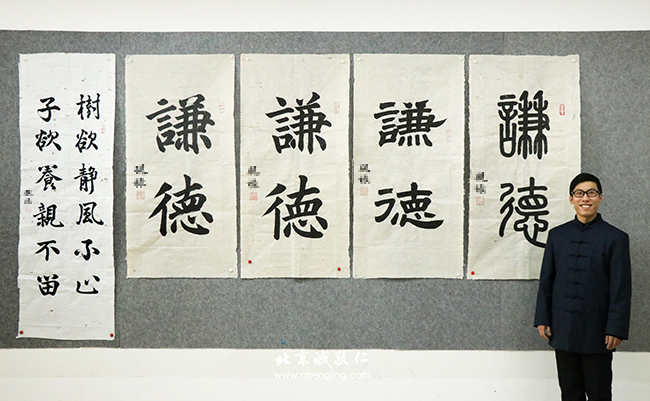 樹欲靜風不止
子欲養親不留
謙德
謙德
謙德
謙德
北京诚敬仁
www.chengjing.com